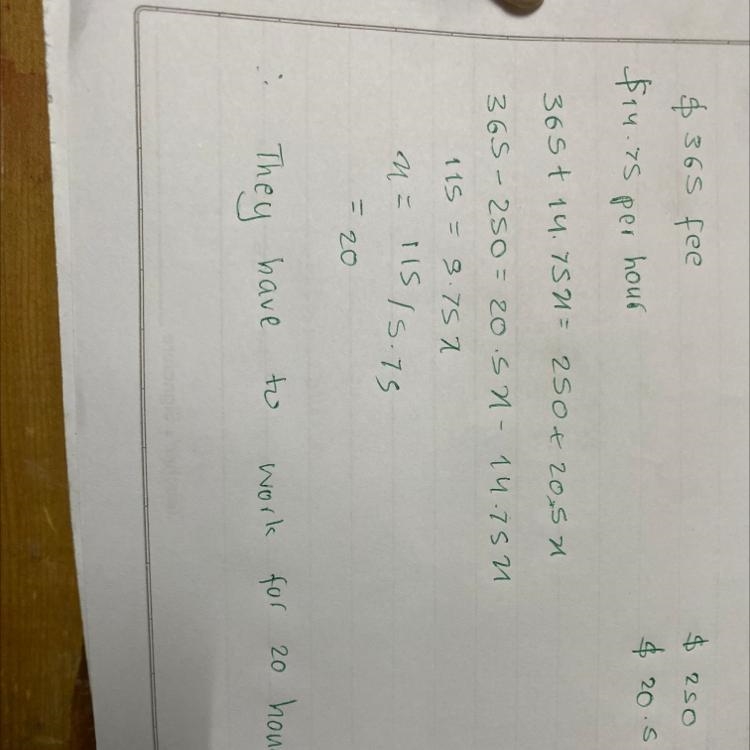 $ 365 fee
$ 250
$14.75 per hour
$ 20.5
365 + 14.75x = 250 + 20.5x
365 - 250 = 20.5x - 14.75x
115 = 9.75x
x = 115/5.75
= 20
∴ They have to work for 20 hou